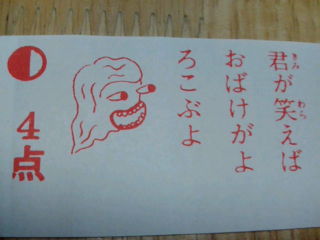 君が笑えば
おばけがよ
ろこぶよ
4点